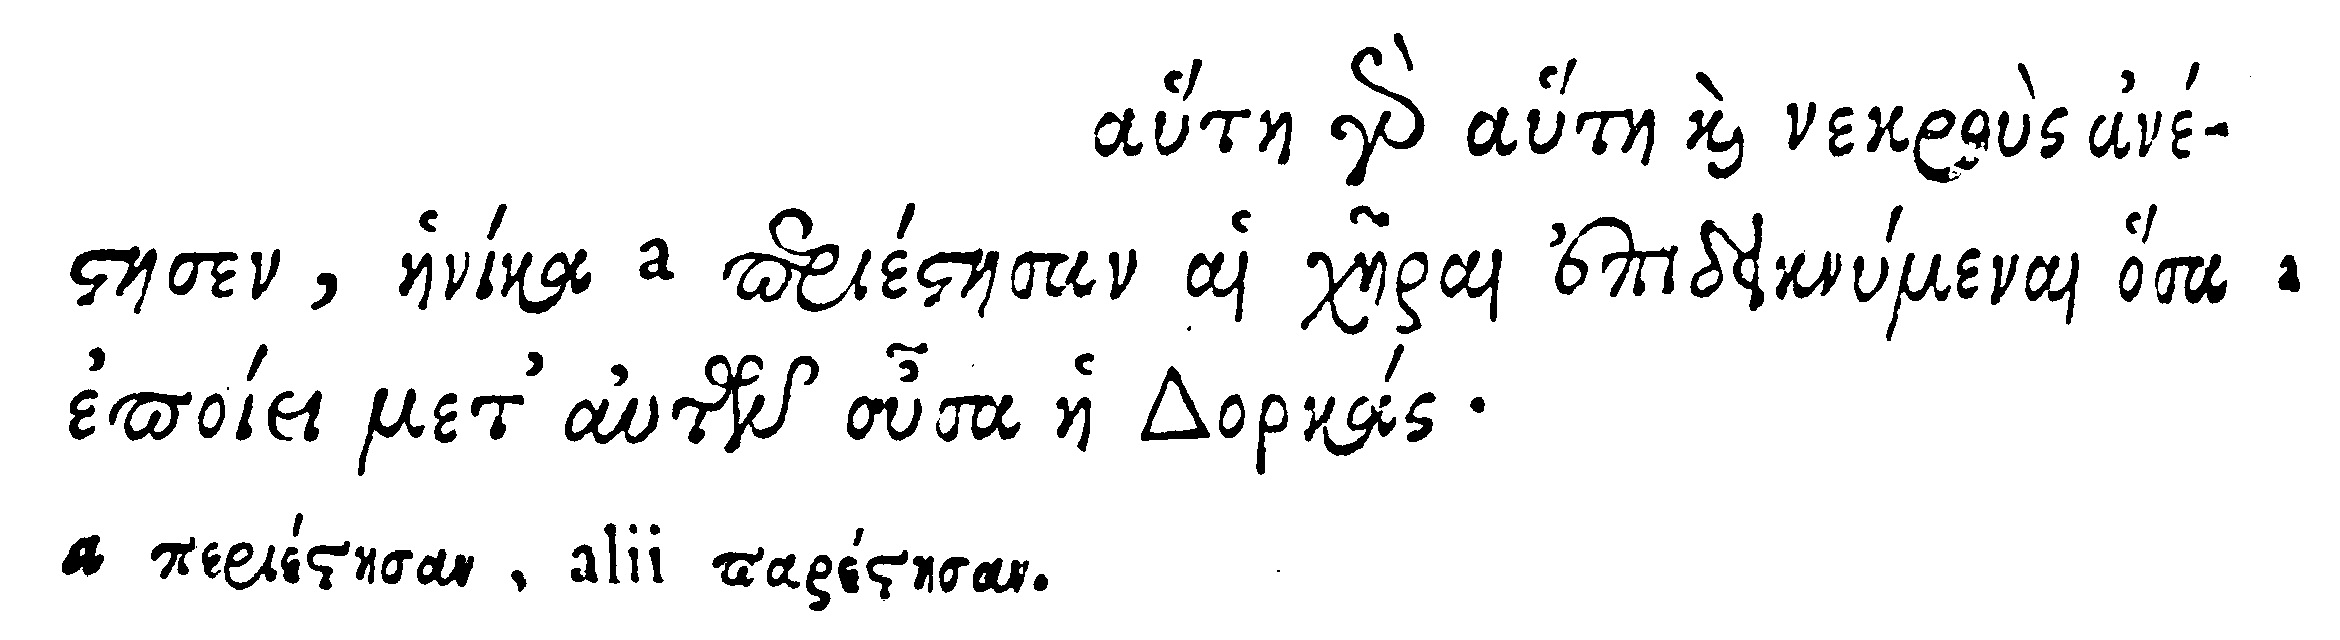 αὕτη γὰρ αὕτη καὶ νεκροὺς ἀνέ-
στησεν, ἡνίκα a περιέστησαν αἱ χῆραι ἐπιδεικνύμεναι ὅσα a
ἐποίει μετ' αὐτῶν οὖσα ἡ Δορκάς.
a περιέστησαν, alii παρέστησαν.